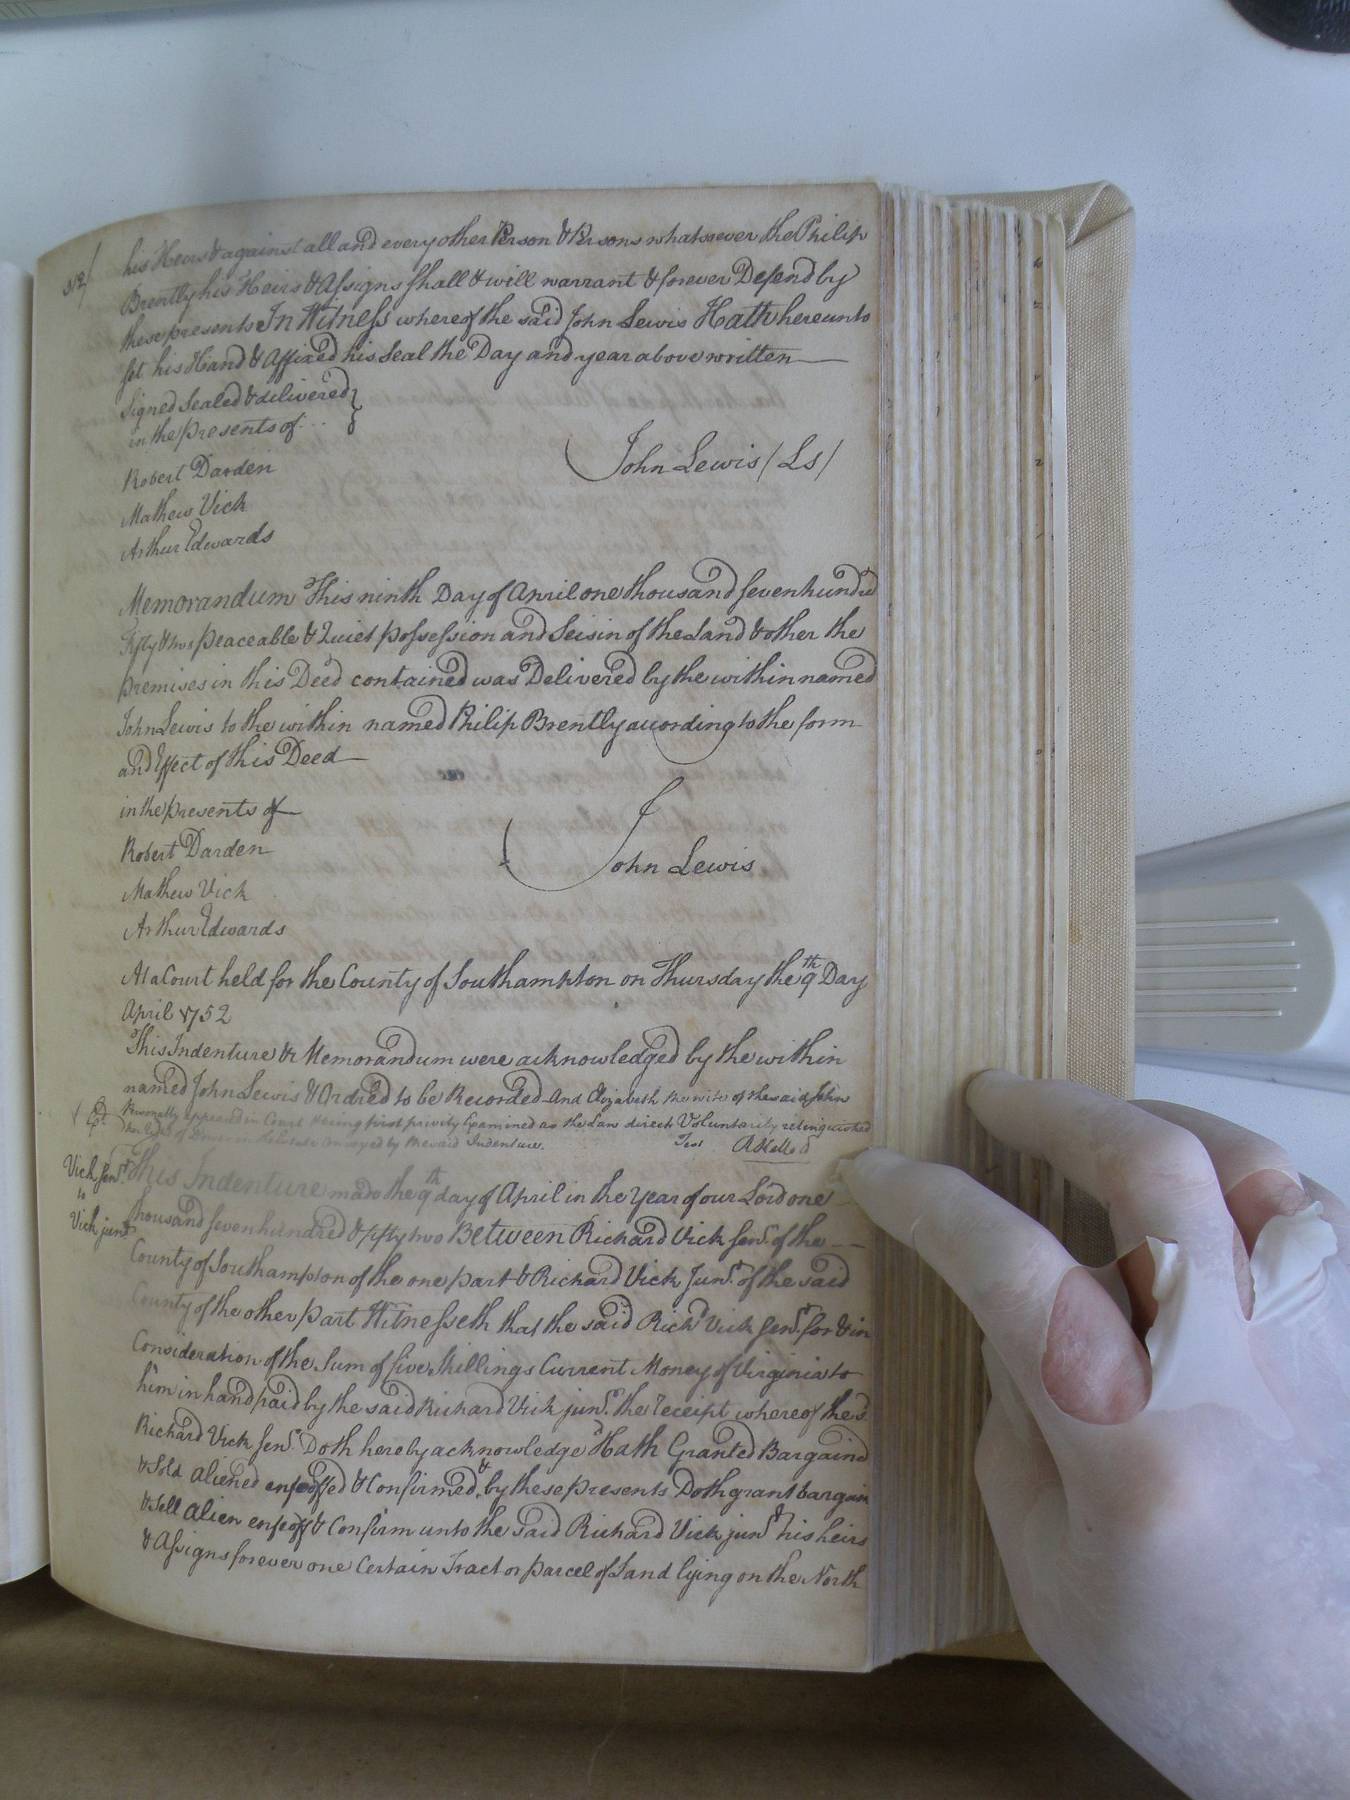 312/
his Heirs & against all and every other Person & Persons whatsoever the Philip
Brently his Heirs & Assigns shall & will warrant & forever Defend by
these presents In Witness whereof the said John Lewis Hath hereunto
set his Hand & Affixed his Seal the Day and year above written
Signed Sealed & delivered
in the presents of...
John Lewis (Ls)
Robert Darden
Mathew Vick
Arthur Edwards
Memorandum This ninth Day of April one thousand Seven hundrd
Fifty & two peaceable & Quiet possession and Seisin of the Land & other the
premises in this Deed contained was Delivered by the within named
John Lewis to the within named Philip Brently according to the form
and Effect of this Deed
in the presents of
Robert Darden
John Lewis
Mathew Vick
Arthur Edwards
At a Court held for the County of Southampton on Thursday the 9th Day
April 1752
This Indenture & Memorandum were acknowledged by the within
named John Lewis & Ordred to be Recorded And Elizabeth the wife of the said John
Personally appeared in Court & being first privily Examined as the Law directs Voluntarily relinquished
her right of Dower in the Estate conveyed by the said Indenture.
Test
Vick senr.
to
Vick junr.
This Indenture made the 9th day of April in the Year of our Lord one
thousand seven hundred & fifty two Between Richard Vick senr. of the
County of Southampton of the one part & Richard Vick Junr. of the said
County of the other part Witnesseth that the said Richd Vick senr. for & in
Consideration of the Sum of five Shillings Current Money of Virginia to
him in hand paid by the said Richard Vick junr. the receipt whereof the sd
Richard Vick senr. Doth hereby acknowledge Hath Granted Bargaind
& Sold aliened enfeoffed & Confirmed & by these presents Doth grant bargain
& Sell alien enfeoff & Confirm unto the said Richard Vick junr. his heirs
& Assigns forever one Certain Tract or parcel of Land lying on the North